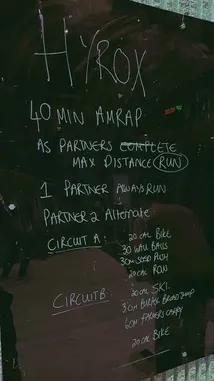 HYROX
40 MIN AMRAP
AS PARTNERS COMPLETE
MAX DISTANCE RUN
1 PARTNER ALWAYS RUN
PARTNER 2 Alternate
CIRCUIT A: 20 CAL BIKE
30 WALL BALLS
30m SLED PUSH
20 CAL ROW
CIRCUIT B: 20 CAL SKI
30m BURPEE BROAD JUMP
60m FARMERS CARRY
20 CAL BIKE